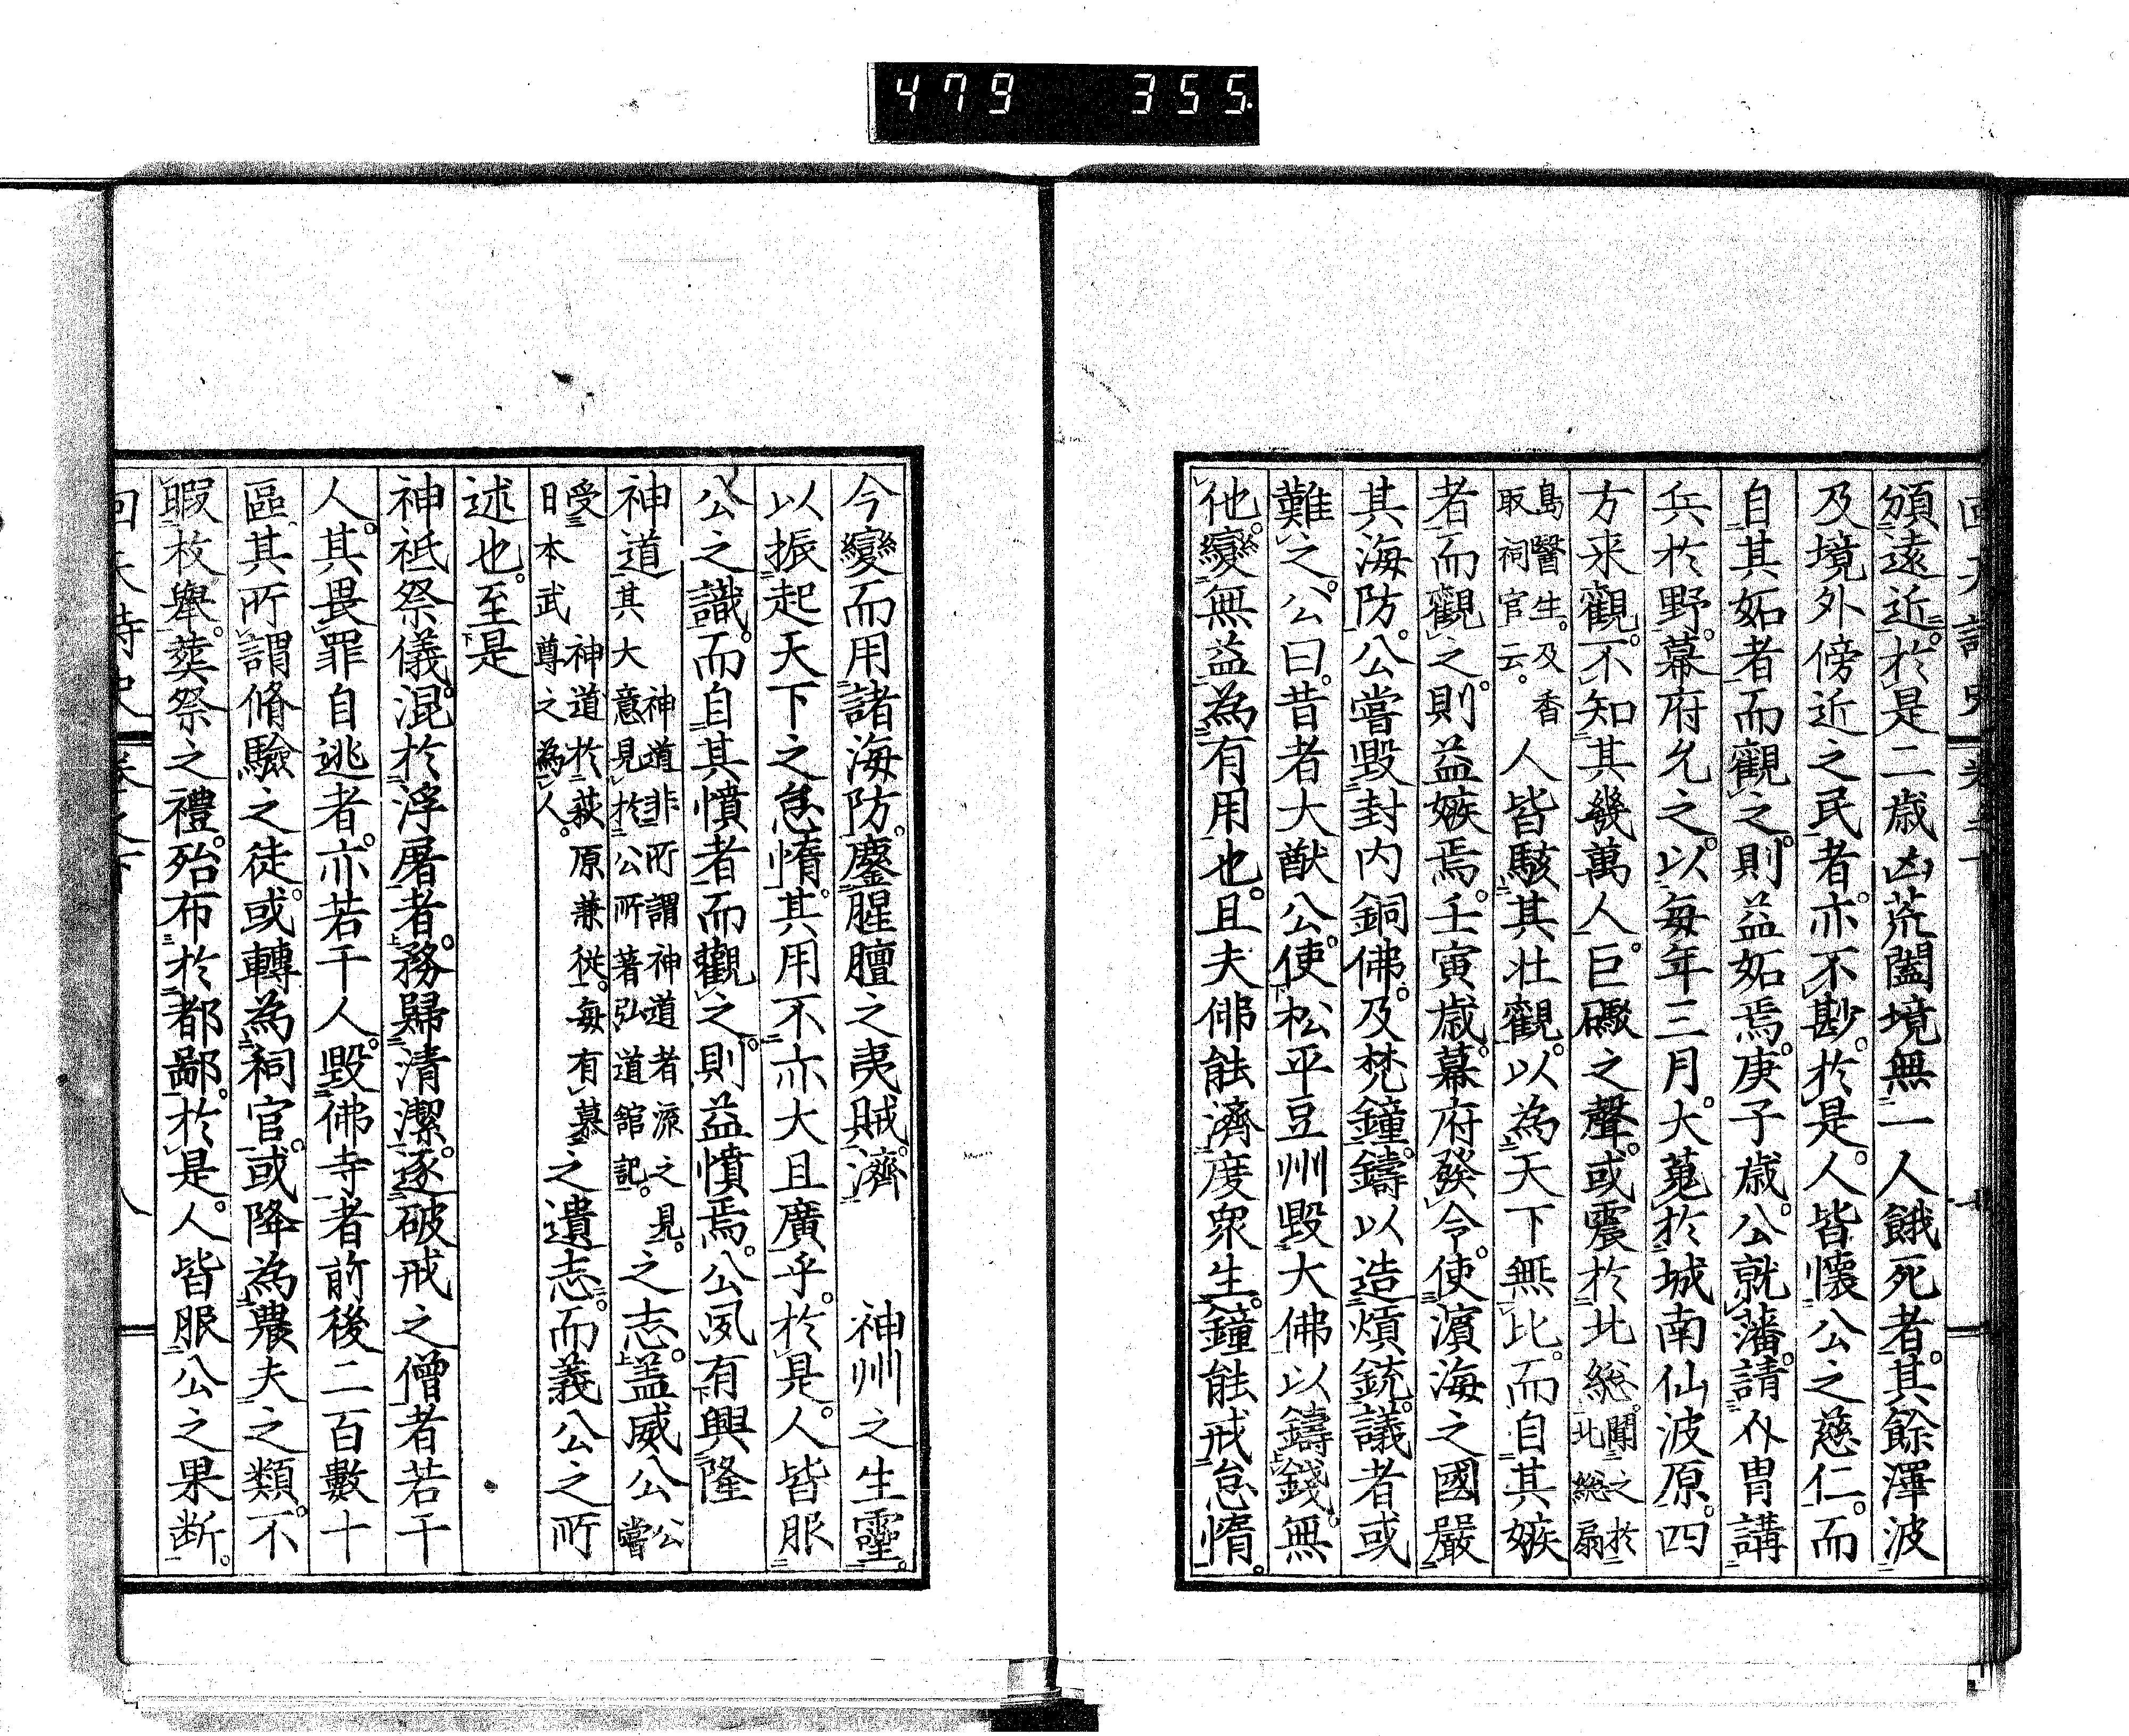 479 355
頒遠近。於是二歳凶荒闔境無一人餓死者。其餘澤波
及境外傍近之民者。亦不尠。於是。人皆懷公之慈仁。而
自其妬者而觀之。則益妬焉。庚子歳。公就藩。請以冑講
兵於野。幕府允之。以毎年三月。大蒐於城南仙波原。四
方来觀。不知其幾萬人。巨礮之聲。或震於北総。聞之於北総扇
島醫生。及香取祠官云。人皆駭其壮觀。以為天下無比。而自其嫉
者而觀之。則益嫉焉。壬寅歳。幕府發令。使濵海之國嚴
其海防。公嘗毀封内銅佛。及梵鐘。鑄以造熕銃。議者或
難之。公曰。昔者大猷公。使松平豆州毀大佛以鑄錢。無
他。變無益為有用也。且夫佛能濟度衆生。鐘能戒怠惰。
今變而用諸海防。鏖腥膻之夷賊。濟神州之生靈。
以振起天下之怠惰。其用不亦大且廣乎。於是。人皆服
公之識。而自其憤者而觀之。則益憤焉。公夙有興隆
神道其大意見於公所著弘道舘記。神道非所謂神道者流之見。之志。盖威公公嘗
受神道於萩原兼従。毎有慕日本武尊之為人。之遺志。而義公之所
述也。至是
神祇祭儀混於浮屠者。務歸清潔。逐破戒之僧者若干
人。其畏罪自逃者。亦若干人。毀佛寺者前後二百數十
區。其所謂脩驗之徒。或轉為祠官。或降為農夫之類。不
暇枚舉。葬祭之禮。殆布於都鄙。於是。人皆服公之果断。
回天詩史 卷之下